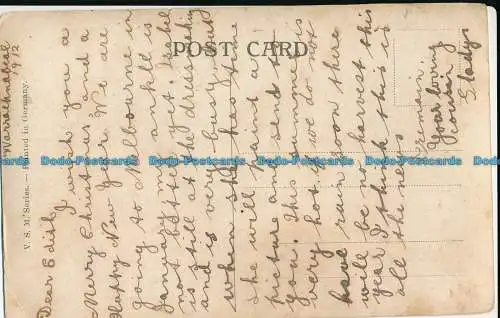 Warracknabeal
1912
Dear Edith
I wish you a
Merry Christmas, and a
Happy New Year. We are
going to Melbourne in
January my ankle is
not better yet. Isabel
is still at the dressmaking
and is very busy, but
when she has time
she will paint a
picture and send to
you. This summer is
very hot if we do not
have rain soon there
will be no harvest this
year I think this is
all the news
I remain
Your loving
cousin
Gladys
POST CARD
V. S. M. Series. Printed in Germany.
Dodo-Postcards Dodo-Postcards Dodo-Postcards Dodo-Postcards
Dodo-Postcards Dodo-Postcards Dodo-Postcards Dodo-Postcards